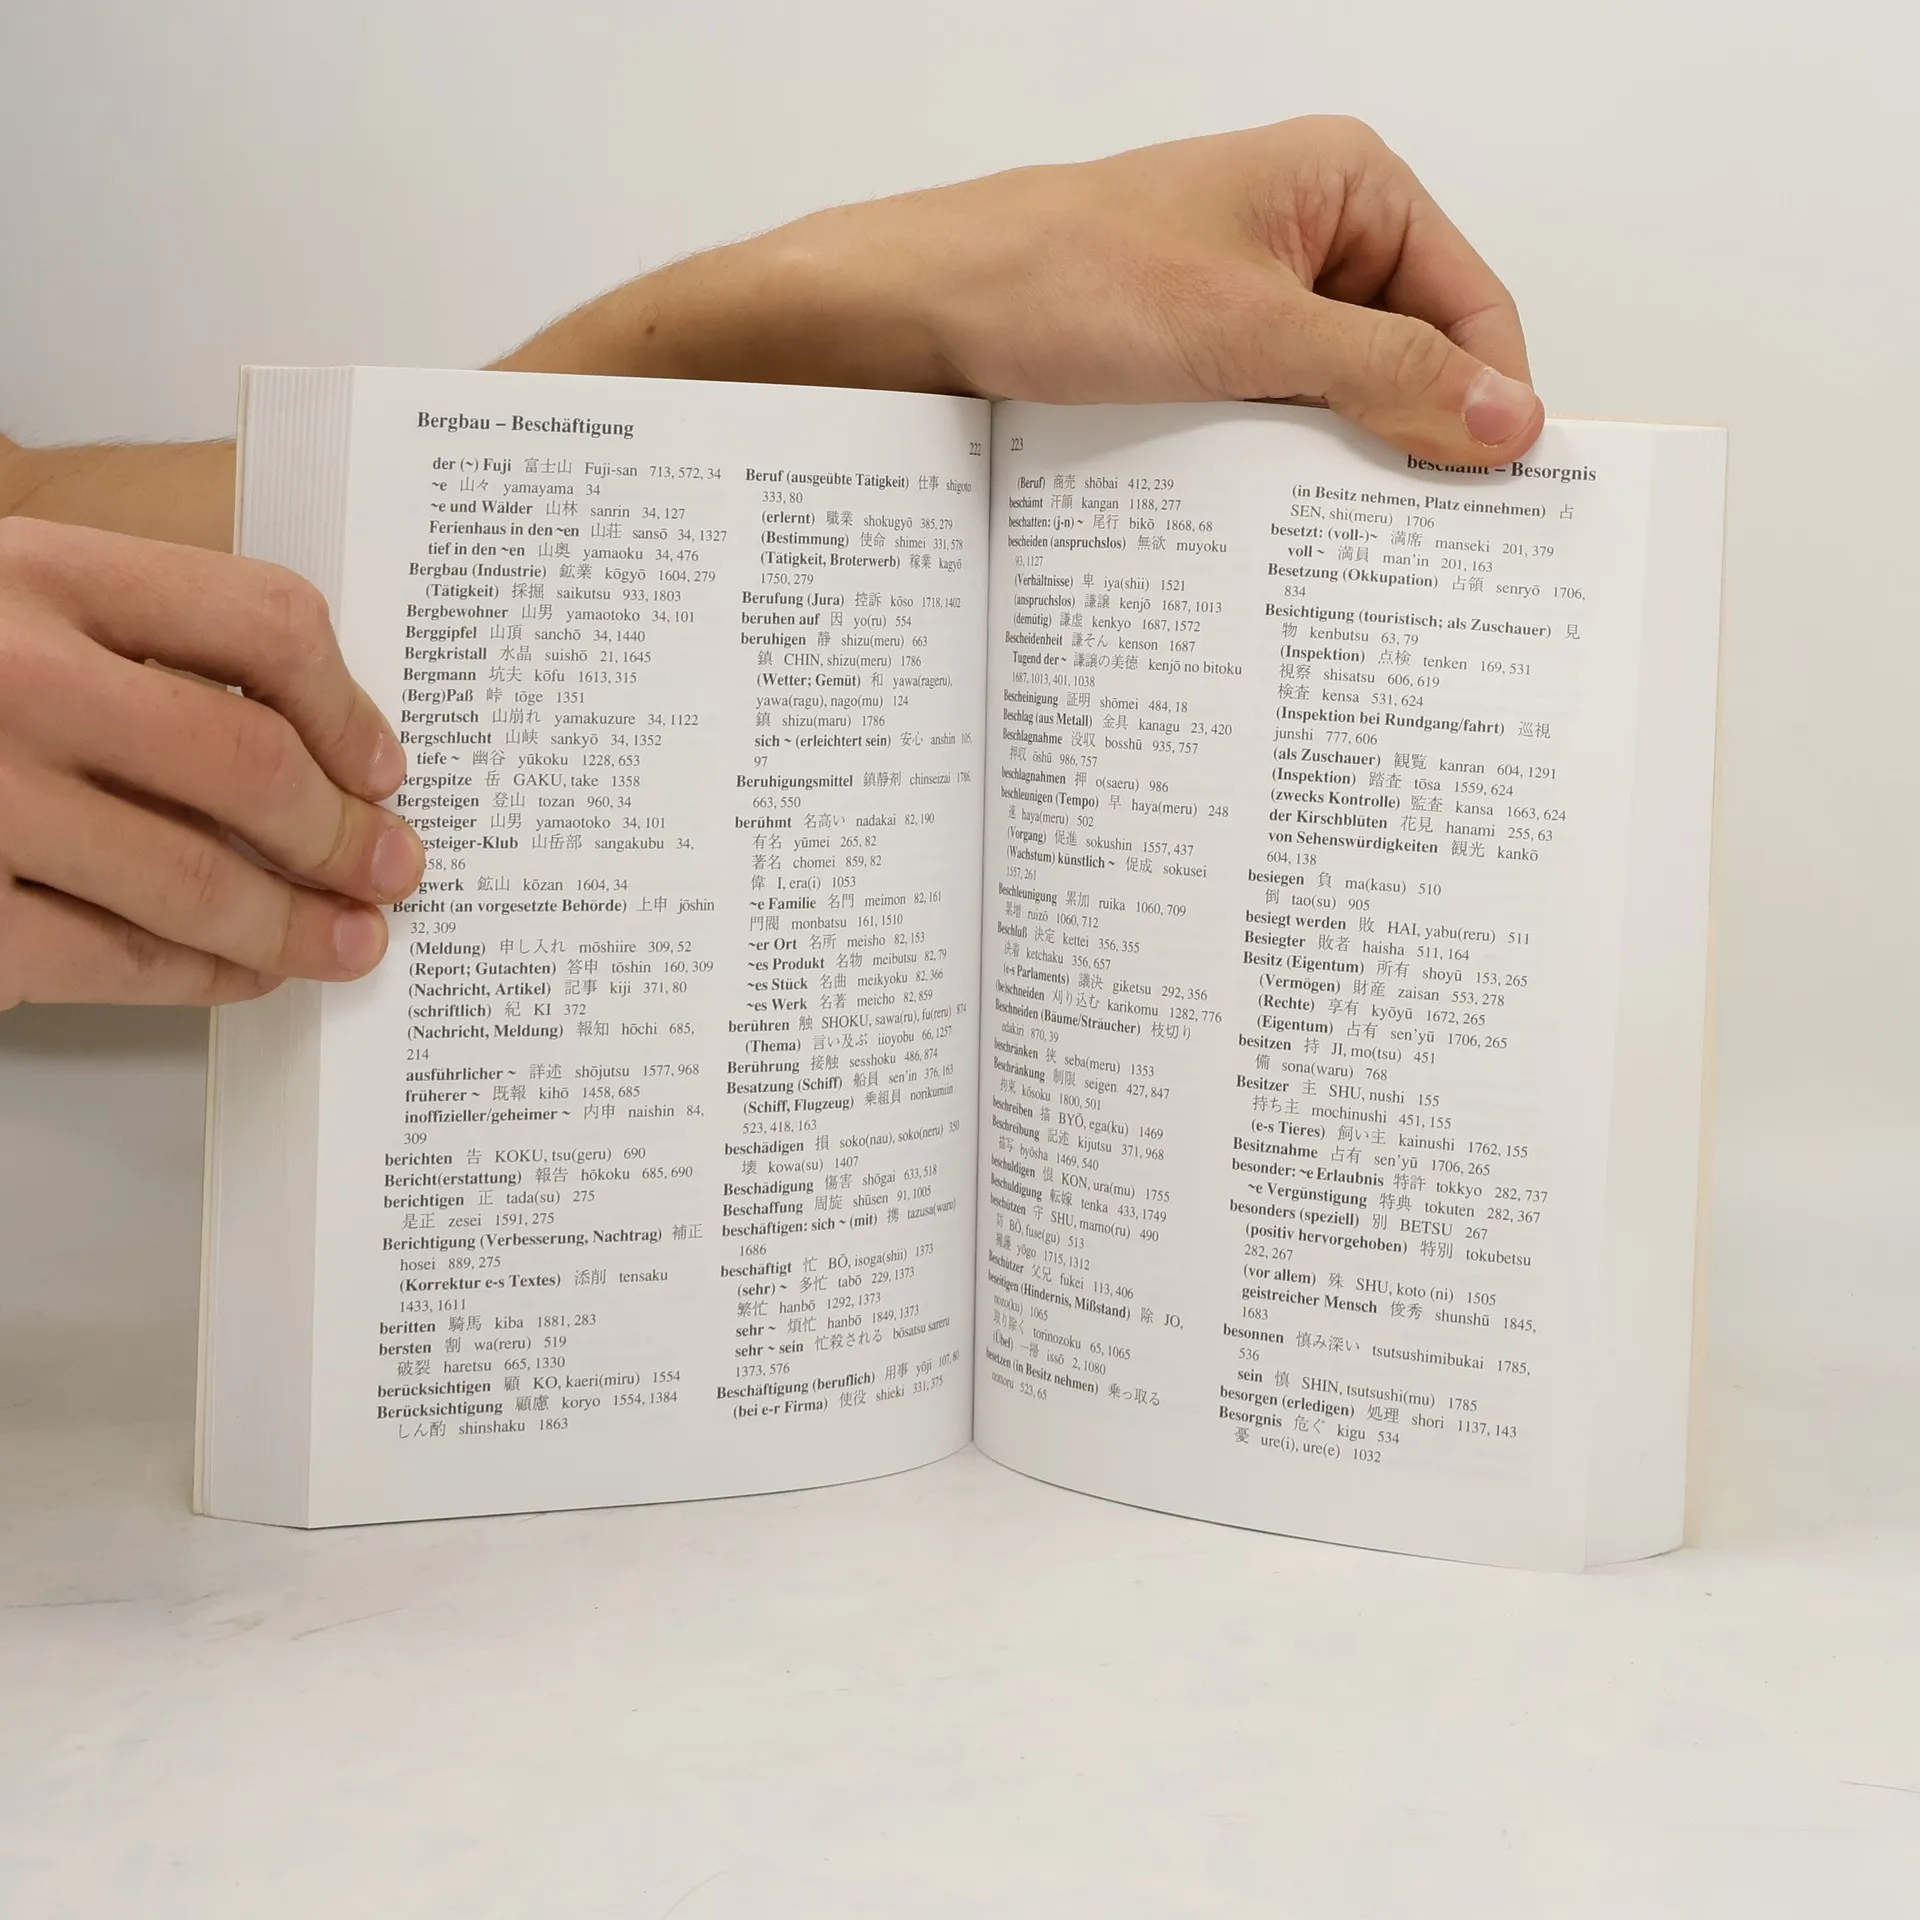 Bergbau – Beschäftigung
222
der (~) Fuji 富士山 Fuji-san 713, 572, 34
~e 山々 yamayama 34
~e und Wälder 山林 sanrin 34, 127
Ferienhaus in den ~en 山荘 sansō 34, 1327
tief in den ~en 山奥 yamaoku 34, 476
Bergbau (Industrie) 鉱業 kōgyō 1604, 279
(Tätigkeit) 採掘 saikutsu 933, 1803
Bergbewohner 山男 yamaotoko 34, 101
Berggipfel 山頂 sanchō 34, 1440
Bergkristall 水晶 suishō 21, 1645
Bergmann 坑夫 kōfu 1613, 315
(Berg)Paß 峠 tōge 1351
Bergrutsch 山崩れ yamakuzure 34, 1122
Bergschlucht 山峡 sankyō 34, 1352
tiefe ~ 幽谷 yūkoku 1228, 653
Bergspitze 岳 GAKU, take 1358
Bergsteigen 登山 tozan 960, 34
ergsteiger 山男 yamaotoko 34, 101
gsteiger-Klub 山岳部 sangakubu 34,
58, 86
gwerk 鉱山 kōzan 1604, 34
Bericht (an vorgesetzte Behörde) 上申 jōshin
32, 309
(Meldung) 申し入れ mōshiire 309, 52
(Report; Gutachten) 答申 tōshin 160, 309
(Nachricht, Artikel) 記事 kiji 371, 80
(schriftlich) 紀 KI 372
(Nachricht, Meldung) 報知 hōchi 685,
214
ausführlicher ~ 詳述 shōjutsu 1577, 968
früherer ~ 既報 kihō 1458, 685
inoffizieller/geheimer ~ 内申 naishin 84,
309
berichten 告 KOKU, tsu(geru) 690
Bericht(erstattung) 報告 hōkoku 685, 690
berichtigen 正 tada(su) 275
是正 zesei 1591, 275
Berichtigung (Verbesserung, Nachtrag) 補正
hosei 889, 275
(Korrektur e-s Textes) 添削 tensaku
1433, 1611
beritten 騎馬 kiba 1881, 283
bersten 割 wa(reru) 519
破裂 haretsu 665, 1330
berücksichtigen 顧 KO, kaeri(miru) 1554
Berücksichtigung 顧慮 koryo 1554, 1384
しん酌 shinshaku 1863
Beruf (ausgeübte Tätigkeit) 仕事 shigoto
333, 80
(erlernt) 職業 shokugyō 385, 279
(Bestimmung) 使命 shimei 331, 578
(Tätigkeit, Broterwerb) 稼業 kagyō
1750, 279
Berufung (Jura) 控訴 kōso 1718, 1402
beruhen auf 因 yo(ru) 554
beruhigen 静 shizu(meru) 663
鎮 CHIN, shizu(meru) 1786
(Wetter; Gemüt) 和 yawa(rageru),
yawa(ragu), nago(mu) 124
鎮 shizu(maru) 1786
sich ~ (erleichtert sein) 安心 anshin 105,
97
Beruhigungsmittel 鎮静剤 chinseizai 1786,
663, 550
berühmt 名高い nadakai 82, 190
有名 yūmei 265, 82
著名 chomei 859, 82
偉 I, era(i) 1053
~e Familie 名門 meimon 82, 161
門閥 monbatsu 161, 1510
~er Ort 名所 meisho 82, 153
~es Produkt 名物 meibutsu 82, 79
~es Stück 名曲 meikyoku 82, 366
~es Werk 名著 meicho 82, 859
berühren 触 SHOKU, sawa(ru), fu(reru) 874
(Thema) 言い及ぶ iioyobu 66, 1257
Berührung 接触 sesshoku 486, 874
Besatzung (Schiff) 船員 sen'in 376, 163
(Schiff, Flugzeug) 乗組員 norikumiin
523, 418, 163
beschädigen 損 soko(nau), soko(neru) 350
壊 kowa(su) 1407
Beschädigung 傷害 shōgai 633, 518
Beschaffung 周旋 shūsen 91, 1005
beschäftigen: sich ~ (mit) 携 tazusa(waru)
1686
beschäftigt 忙 BŌ, isoga(shii) 1373
(sehr) ~ 多忙 tabō 229, 1373
繁忙 hanbō 1292, 1373
sehr ~ 煩忙 hanbō 1849, 1373
sehr ~ sein 忙殺される bōsatsu sareru
1373, 576
Beschäftigung (beruflich) 用事 yōji 107, 80
(bei e-r Firma) 使役 shieki 331, 375
223
– Besorgnis
(Beruf) 商売 shōbai 412, 239
beschämt 汗顔 kangan 1188, 277
beschatten: (j-n) ~ 尾行 bikō 1868, 68
bescheiden (anspruchslos) 無欲 muyoku
93, 1127
(Verhältnisse) 卑 iya(shii) 1521
(anspruchslos) 謙譲 kenjō 1687, 1013
(demütig) 謙虚 kenkyo 1687, 1572
Bescheidenheit 謙そん kenson 1687
Tugend der ~ 謙譲の美徳 kenjō no bitoku
1687, 1013, 401, 1038
Bescheinigung 証明 shōmei 484, 18
Beschlag (aus Metall) 金具 kanagu 23, 420
Beschlagnahme 没収 bosshū 935, 757
押収 ōshū 986, 757
beschlagnahmen 押 o(saeru) 986
beschleunigen (Tempo) 早 haya(meru) 248
速 haya(meru) 502
(Vorgang) 促進 sokushin 1557, 437
(Wachstum) künstlich ~ 促成 sokusei
1557, 261
Beschleunigung 累加 ruika 1060, 709
累増 ruizō 1060, 712
Beschluß 決定 kettei 356, 355
決着 ketchaku 356, 657
(e-s Parlaments) 議決 giketsu 292, 356
(be)schneiden 刈り込む karikomu 1282, 776
Beschneiden (Bäume/Sträucher) 枝切り
edakiri 870, 39
beschränken 狭 seba(meru) 1353
Beschränkung 制限 seigen 427, 847
拘束 kōsoku 1800, 501
beschreiben 描 BYŌ, ega(ku) 1469
Beschreibung 記述 kijutsu 371, 968
描写 byōsha 1469, 540
beschuldigen 恨 KON, ura(mu) 1755
Beschuldigung 転嫁 tenka 433, 1749
beschützen 守 SHU, mamo(ru) 490
防 BŌ, fuse(gu) 513
擁護 yōgo 1715, 1312
Beschützer 父兄 fukei 113, 406
beseitigen (Hindernis, Mißstand) 除 JO,
nozo(ku) 1065
取り除く torinozoku 65, 1065
(Übel) 一掃 issō 2, 1080
besetzen (in Besitz nehmen) 乗っ取る
nottoru 523, 65
(in Besitz nehmen, Platz einnehmen) 占
SEN, shi(meru) 1706
besetzt: (voll-)~ 満席 manseki 201, 379
voll ~ 満員 man'in 201, 163
Besetzung (Okkupation) 占領 senryō 1706,
834
Besichtigung (touristisch; als Zuschauer) 見
物 kenbutsu 63, 79
(Inspektion) 点検 tenken 169, 531
視察 shisatsu 606, 619
検査 kensa 531, 624
(Inspektion bei Rundgang/fahrt) 巡視
junshi 777, 606
(als Zuschauer) 観覧 kanran 604, 1291
(Inspektion) 踏査 tōsa 1559, 624
(zwecks Kontrolle) 監査 kansa 1663, 624
der Kirschblüten 花見 hanami 255, 63
von Sehenswürdigkeiten 観光 kankō
604, 138
besiegen 負 ma(kasu) 510
倒 tao(su) 905
besiegt werden 敗 HAI, yabu(reru) 511
Besiegter 敗者 haisha 511, 164
Besitz (Eigentum) 所有 shoyū 153, 265
(Vermögen) 財産 zaisan 553, 278
(Rechte) 享有 kyōyū 1672, 265
(Eigentum) 占有 sen'yū 1706, 265
besitzen 持 JI, mo(tsu) 451
備 sona(waru) 768
Besitzer 主 SHU, nushi 155
持ち主 mochinushi 451, 155
(e-s Tieres) 飼い主 kainushi 1762, 155
Besitznahme 占有 sen'yū 1706, 265
besonder: ~e Erlaubnis 特許 tokkyo 282, 737
~e Vergünstigung 特典 tokuten 282, 367
besonders (speziell) 別 BETSU 267
(positiv hervorgehoben) 特別 tokubetsu
282, 267
(vor allem) 殊 SHU, koto (ni) 1505
geistreicher Mensch 俊秀 shunshū 1845,
1683
besonnen 慎み深い tsutsushimibukai 1785,
536
sein 慎 SHIN, tsutsushi(mu) 1785
besorgen (erledigen) 処理 shori 1137, 143
Besorgnis 危ぐ kigu 534
憂 ure(i), ure(e) 1032